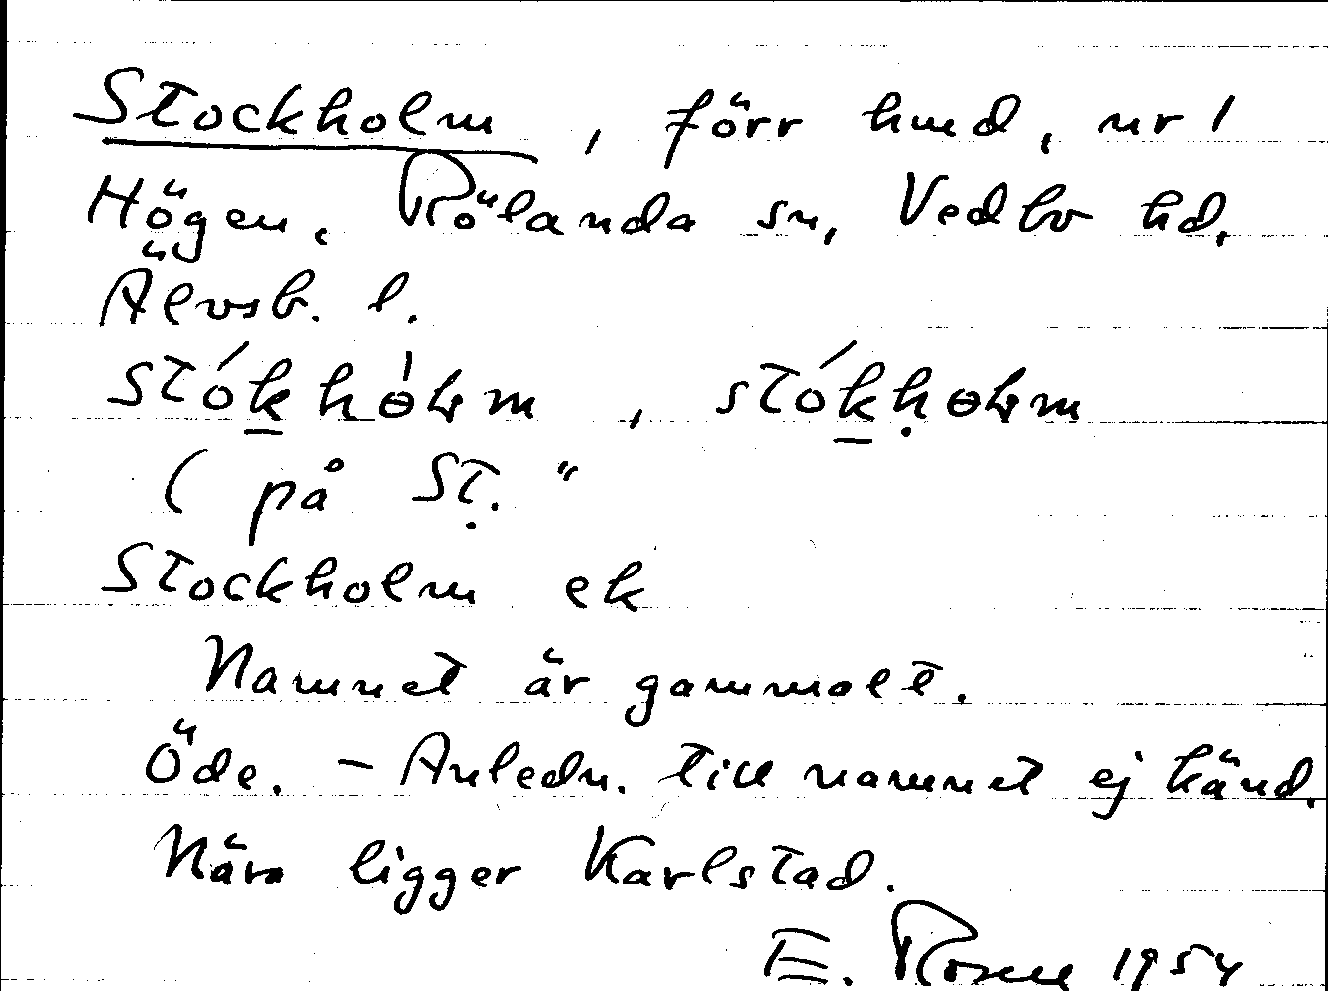 Stockholm, förr hmd, nr 1
Högen, Rölanda sn, Vedbo hd,
Älvsb. l.
(på St."
Stockholm ek
Namnet är gammalt.
Öde. - Anledn. till namnet ej känd.
Nära ligger Karlstad.
E. Rosell 1954